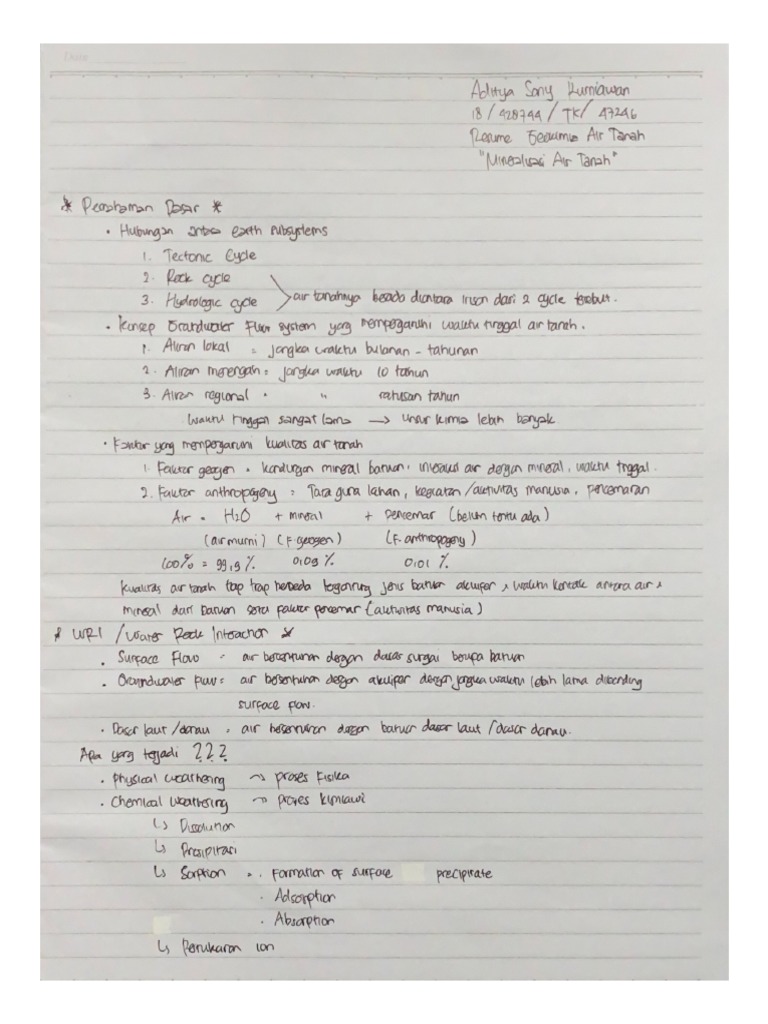 Date
Aditya Sony Kurniawan
18/428744/TK/47246
Resume Geokimia Air Tanah
"Mineralisasi Air Tanah"
* Pemahaman Dasar *
• Hubungan antara earth subsystems
1. Tectonic Cycle
2. Rock cycle
3. Hydrologic cycle > air tanahnya berada diantara irisan dari 2 cycle tersebut.
• Konsep Groundwater Flow system yang mempengaruhi waktu tinggal air tanah.
1. Aliran lokal = jangka waktu bulanan - tahunan
2. Aliran menengah = jangka waktu 10 tahun
3. Aliran regional = " ratusan tahun
Waktu tinggal sangat lama → unsur kimia lebih banyak
• Faktor yang mempengaruhi kualitas air tanah
1. Faktor geogen = kandungan mineral batuan, interaksi air dengan mineral, waktu tinggal.
2. Faktor anthropogeny = Tata guna lahan, kegiatan/aktivitas manusia, pencemaran
Air = H2O + mineral + pencemar (belum tentu ada)
(air murni) (F. geogen) (F. anthropogeny)
100% = 99,9% 0,09% 0,01%
Kualitas air tanah tiap tiap berbeda tergantung jenis batuan akuifer, waktu kontak antara air &
mineral dari batuan serta faktor pencemar (aktivitas manusia)
* WRI / Water Rock Interaction *
• Surface Flow = air bersentuhan dengan dasar sungai berupa batuan
• Groundwater flow = air bersentuhan dengan akuifer dengan jangka waktu lebih lama dibanding
surface flow.
• Dasar laut/danau = air bersentuhan dengan batuan dasar laut / dasar danau.
Apa yang terjadi ???
• Physical weathering → proses fisika
• Chemical weathering → proses kimiawi
↳ Dissolution
↳ Presipitasi
↳ Sorption = • Formation of surface precipitate
• Adsorption
• Absorption
↳ Pertukaran ion